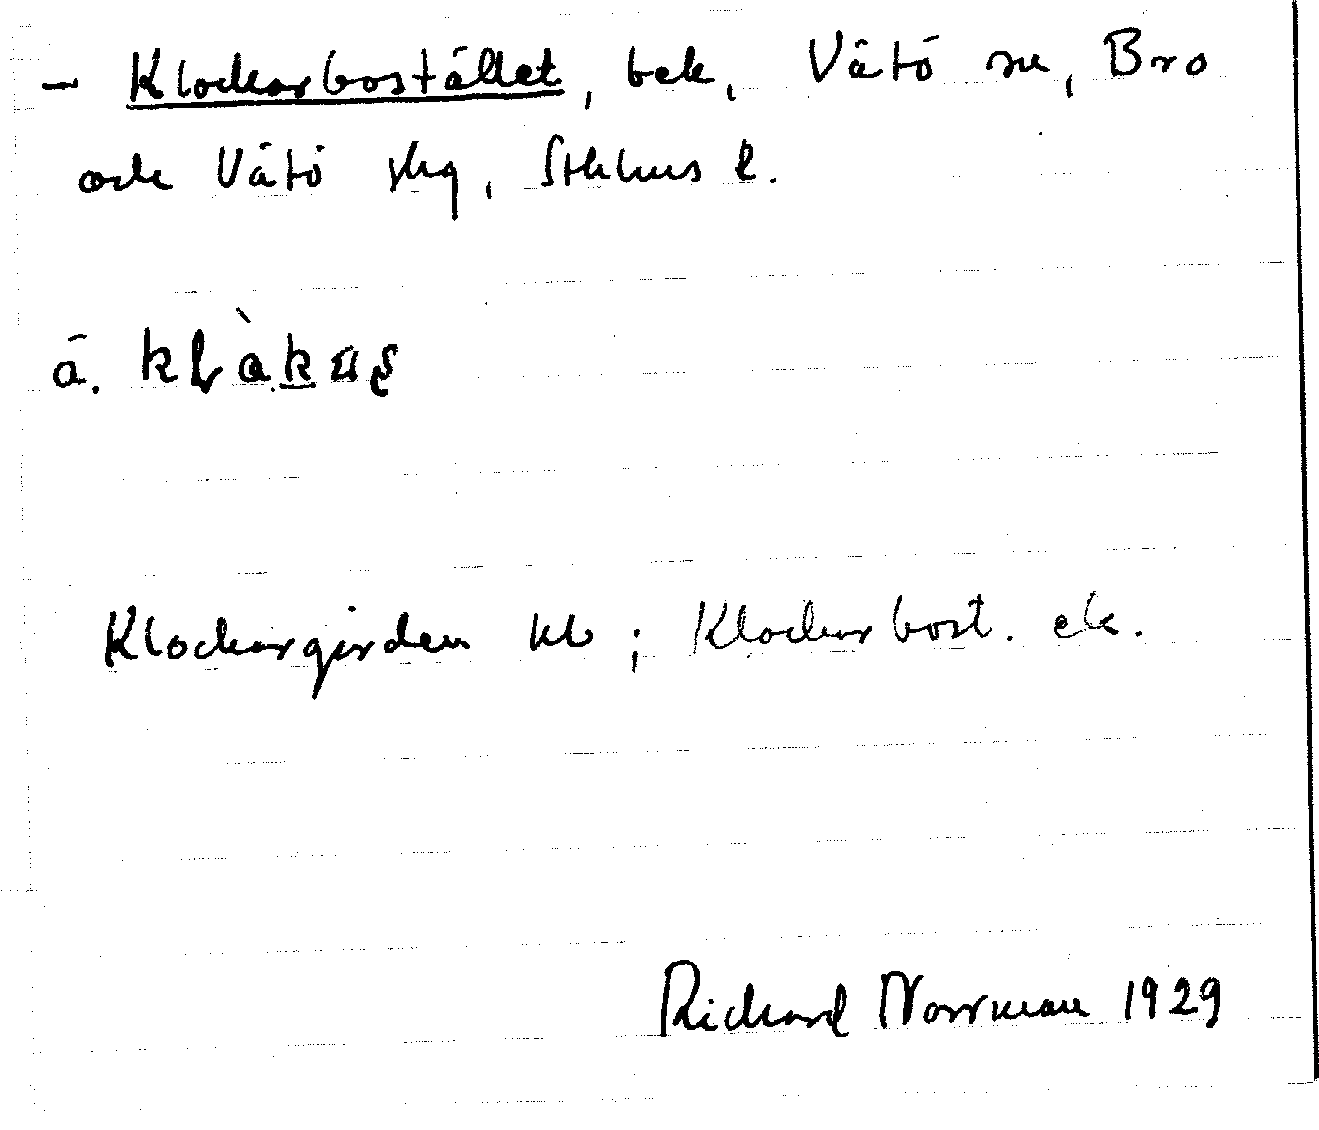 - Klockarbostället, bek, Vätö sn, Bro
och Vätö skg, Sthlms l.
å. klàkas
Klockargården kb; Klockarbost. ek.
Rickard Norrman 1929